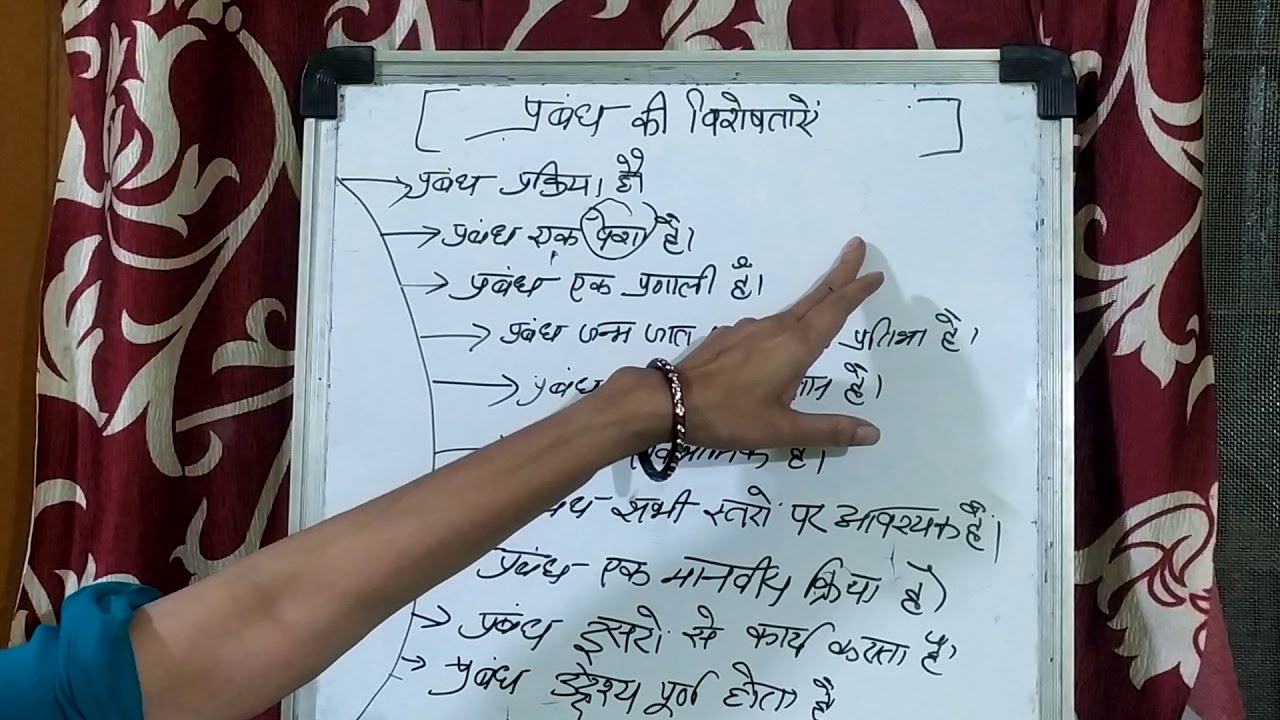 [ प्रबंध की विशेषताऐं ]
प्रबंध प्रक्रिया है।
प्रबंध एक पेशा है।
प्रबंध एक प्रणाली है।
प्रबंध जन्म जात प्रतिभा है।
प्रबंध है।
है।
सभी स्तरों पर आवश्यक है।
प्रबंध एक मानवीय क्रिया है
प्रबंध दूसरों से कार्य करता है
प्रबंध उद्देश्य पूर्ण होता है